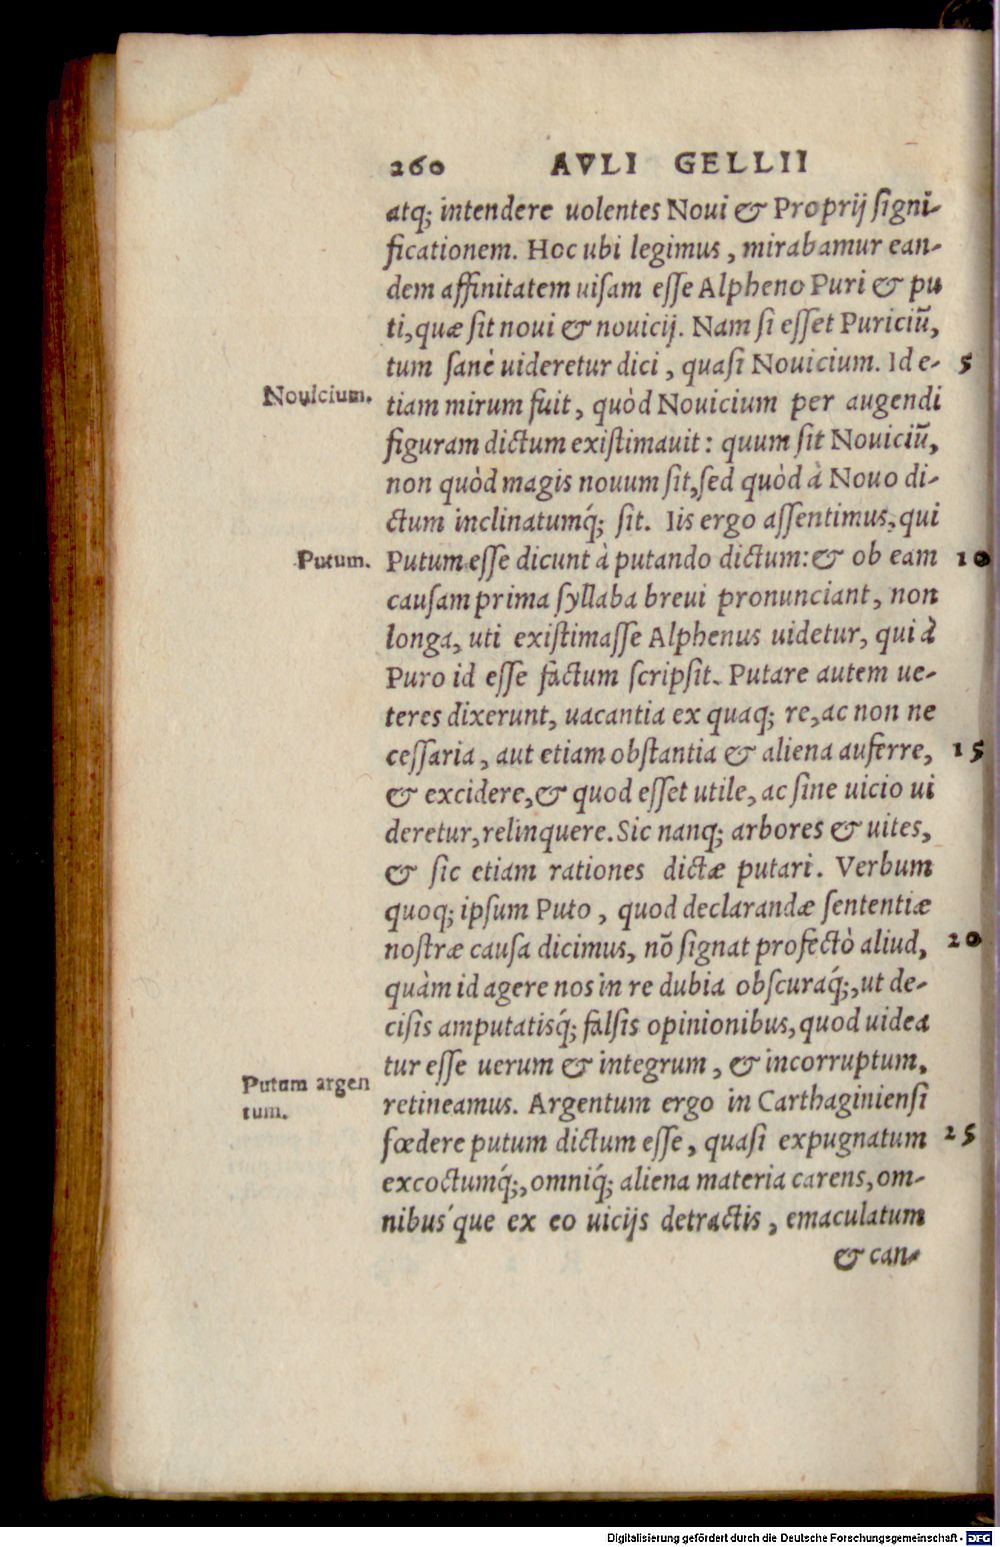 260 AVLI GELLII
atq; intendere uolentes Noui & Proprij ſigni-
ficationem. Hoc ubi legimus, mirabamur ean-
dem affinitatem uiſam eſſe Alpheno Puri & pu
ti, quæ ſit noui & nouicij. Nam ſi eſſet Puriciũ,
tum ſanè uideretur dici, quaſi Nouicium. Id e- 5
Nouicium. tiam mirum fuit, quòd Nouicium per augendi
figuram dictum exiſtimauit: quum ſit Nouiciũ,
non quòd magis nouum ſit, ſed quòd à Nouo di-
ctum inclinatumq́; ſit. Iis ergo aſſentimus, qui
Putum. Putum eſſe dicunt à putando dictum: & ob eam 10
cauſam prima ſyllaba breui pronunciant, non
longa, uti exiſtimaſſe Alphenus uidetur, qui à
Puro id eſſe factum ſcripſit. Putare autem ue-
teres dixerunt, uacantia ex quaq; re, ac non ne
ceſſaria, aut etiam obſtantia & aliena auferre, 15
& excidere, & quod eſſet utile, ac ſine uicio ui
deretur, relinquere. Sic nanq; arbores & uites,
& ſic etiam rationes dictæ putari. Verbum
quoq; ipſum Puto, quod declarandæ ſententiæ
noſtræ cauſa dicimus, nõ ſignat profectò aliud, 20
quàm id agere nos in re dubia obſcuraq́;, ut de-
ciſis amputatisq́; falſis opinionibus, quod uidea
tur eſſe uerum & integrum, & incorruptum,
Putum argen
tum.
retineamus. Argentum ergo in Carthaginienſi
fœdere putum dictum eſſe, quaſi expugnatum 25
excoctumq́;, omniq́; aliena materia carens, om-
nibus´que ex eo uicijs detractis, emaculatum
& can-
Digitalisierung gefördert durch die Deutsche Forschungsgemeinschaft - DFG